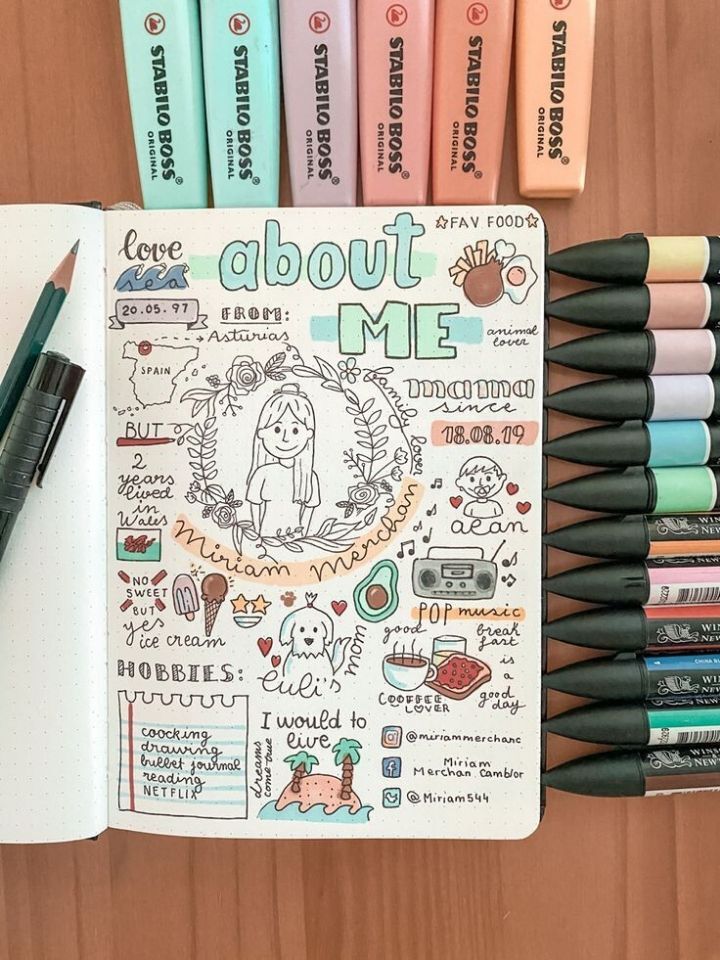 STABILO BOSS® ORIGINAL
STABILO BOSS® ORIGINAL
STABILO BOSS® ORIGINAL
STABILO BOSS® ORIGINAL
STABILO BOSS® ORIGINAL
STABILO BOSS® ORIGINAL
love
sea
about
ME
FAV FOOD
20.05.97
FROM:
Asturias
SPAIN
animal
lover
family lover
mama
since
18.08.19
BUT
2
years
lived
in
Wales
Miriam Merchan
aean
NO
SWEET
BUT
yes
ice cream
POP music
luli's
mom
good
break
fast
is
a
good
day
COOFFEE
LOVER
HOBBIES:
coocking
drawing
bullet journal
reading
NETFLIX
I would to
live
dreams
come true
@miriammerchanc
Miriam
Merchan Cambor
@Miriam544